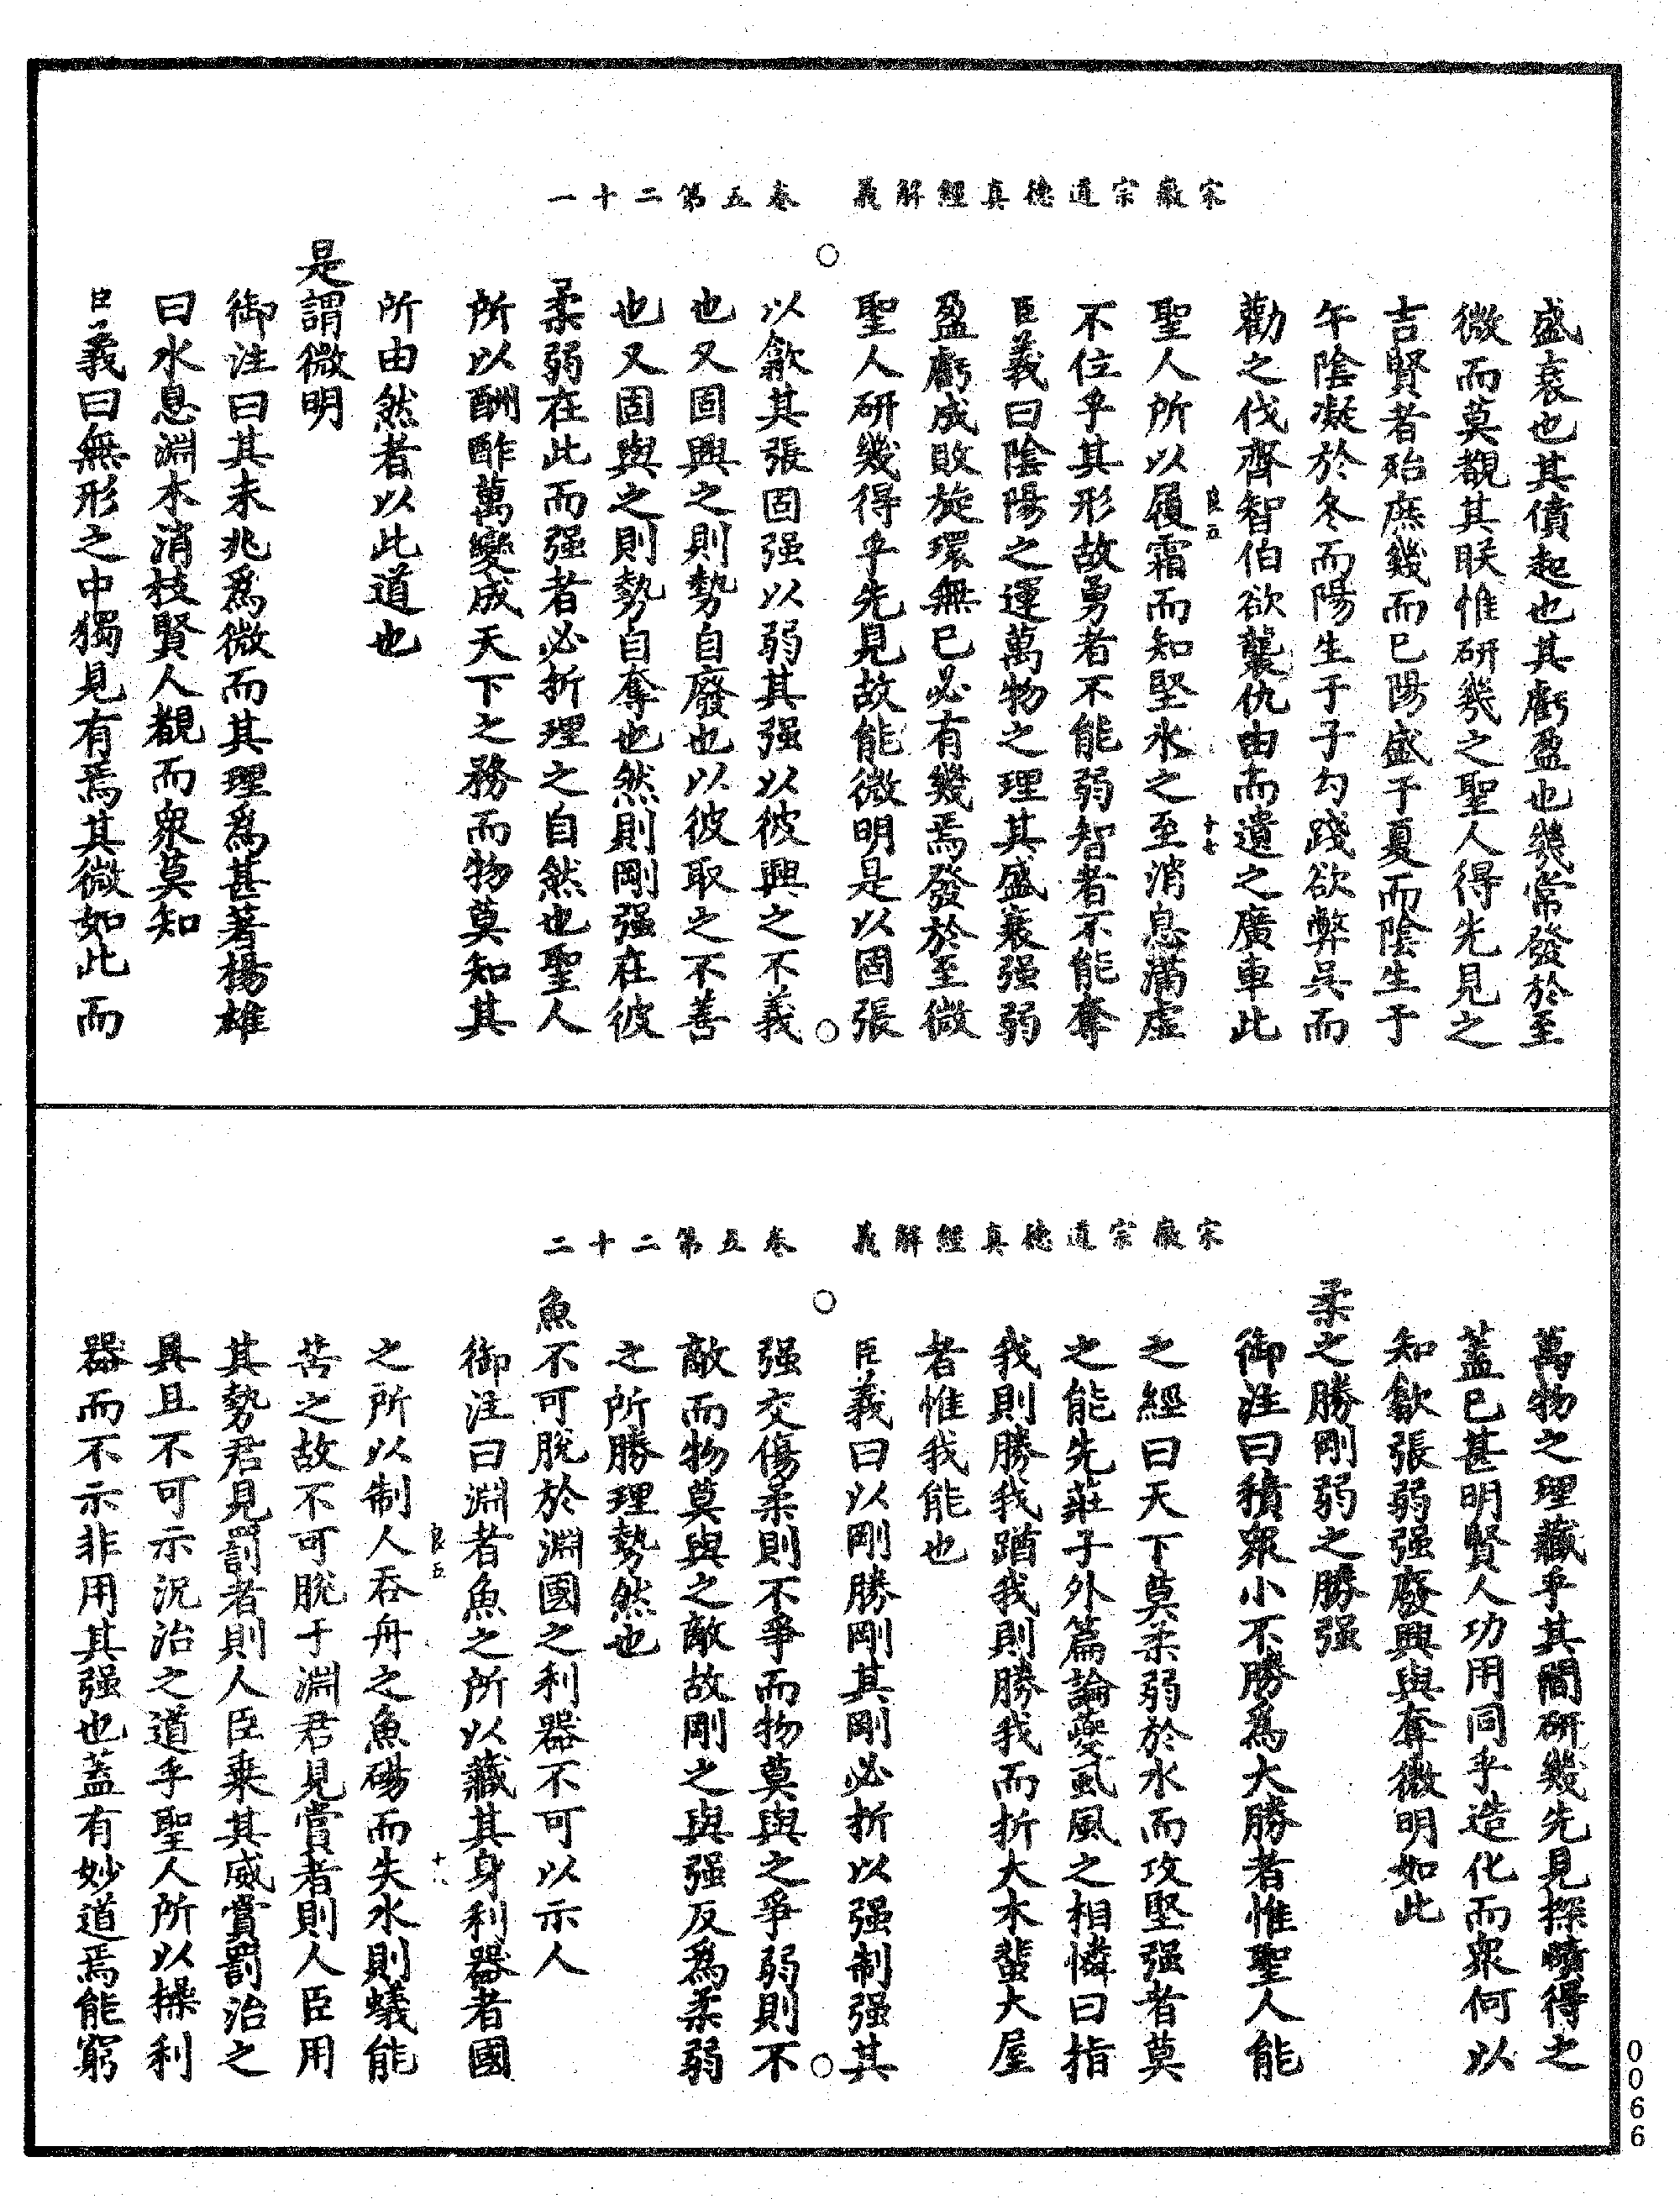 宋徽宗道德真經解義　卷五第二十一
盛衰也其僨起也其虧盈也幾常發於至
微而莫覩其朕惟研幾之聖人得先見之
吉賢者殆庶幾而已陽盛于夏而陰生于
午陰凝於冬而陽生于子勾踐欲弊吳而
勸之伐齊智伯欲襲仇由而遺之廣車此
良五
十七
聖人所以履霜而知堅氷之至消息滿虛
不位乎其形故勇者不能弱智者不能奪
臣義曰陰陽之運萬物之理其盛衰强弱
盈虧成敗旋環無已必有幾焉發於至微
聖人研幾得乎先見故能微明是以固張
○
○
以歙其張固强以弱其强以彼興之不義
也又固興之則勢自廢也以彼取之不善
也又固與之則勢自奪也然則剛强在彼
柔弱在此而强者必折理之自然也聖人
所以酬酢萬變成天下之務而物莫知其
所由然者以此道也
是謂微明
御注曰其未兆爲微而其理爲甚著楊雄
曰水息淵木消枝賢人覩而衆莫知
臣義曰無形之中獨見有焉其微如此而
宋徽宗道德真經解義　卷五第二十二
萬物之理藏乎其間研幾先見探賾得之
蓋已甚明賢人功用同乎造化而衆何以
知歙張弱强廢興與奪微明如此
柔之勝剛弱之勝强
御注曰積衆小不勝爲大勝者惟聖人能
之經曰天下莫柔弱於水而攻堅强者莫
之能先莊子外篇論夔虱風之相憐曰指
我則勝我蹈我則勝我而折大木蜚大屋
者惟我能也
臣義曰以剛勝剛其剛必折以强制强其
○
○
强交傷柔則不爭而物莫與之爭弱則不
敵而物莫與之敵故剛之與强反爲柔弱
之所勝理勢然也
魚不可脫於淵國之利器不可以示人
御注曰淵者魚之所以藏其身利器者國
良五
十八
之所以制人吞舟之魚碭而失水則蟻能
苦之故不可脫于淵君見賞者則人臣用
其勢君見罰者則人臣乗其威賞罰治之
具且不可示況治之道乎聖人所以操利
器而不示非用其强也蓋有妙道焉能窮
0066